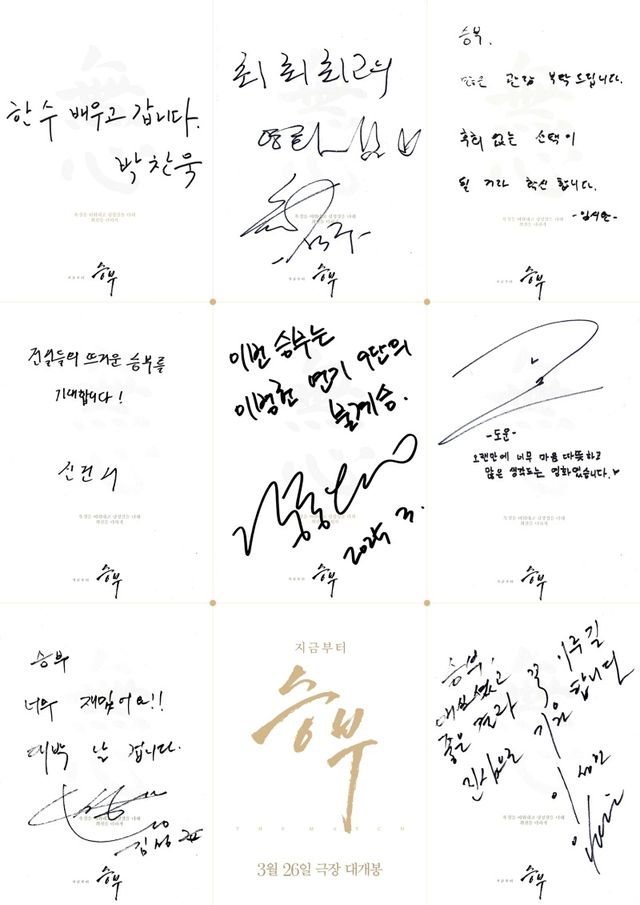 無心
한 수 배우고 갑니다.
박찬욱
승부
無心
최최최고의
영화
승부
無心
승부,
많은 관람 부탁드립니다.
후회 없는 선택이
될 거라 확신합니다.
-임시완-
승부
無心
전설들의 뜨거운 승부를
기대합니다!
승부
無心
이번 승부는
이병헌 연기 9단의
불계승.
2025. 3.
승부
無心
-도운-
오랜만에 너무 마음 따뜻하고
많은 생각하는 영화였습니다.
승부
無心
승부
너무 재밌어요!!
대박 날 겁니다.
승부
지금부터
승부
THE MATCH
3월 26일 극장 대개봉
無心
승부,
좋은 결과 꼭 이루길
진심으로 기원합니다
승부